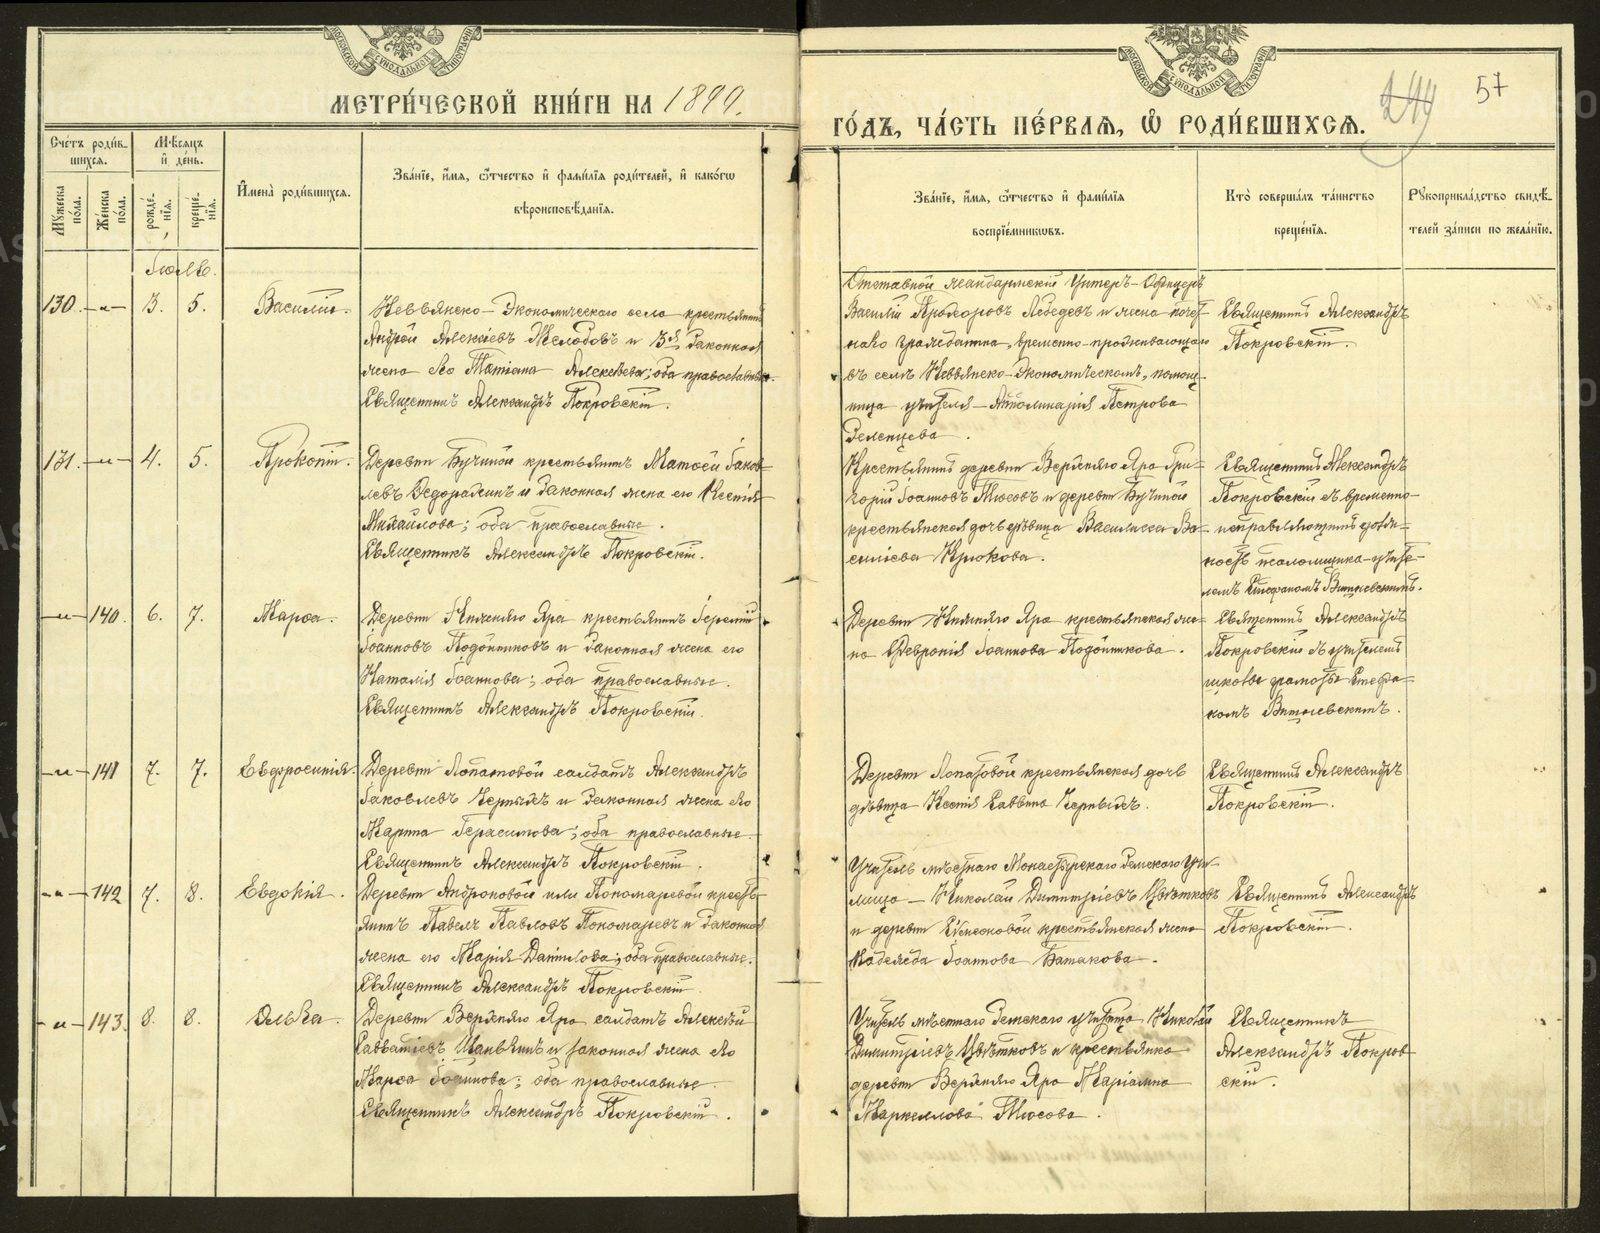 МЕТРИ́ЧЕСКОЙ КНИ́ГИ НА 1899.
ГО́ДЪ, ЧА́СТЬ ПЕ́РВАЯ, Ѡ РОДИ́ВШИХСЯ.
57
Сче́тъ роди́в-
шихся.
Мѣ́сяцъ
и҆ де́нь.
Му́жеска
по́ла.
Же́нска
по́ла.
рожде́-
нїя.
креще́-
нїя.
И҆мена̀ роди́вшихся.
Зва́нїе, и҆́мя, ѻ҆́тчество и҆ фами́лїя роди́телей, и҆ како́гѡ
вѣроисповѣ́данїя.
Зва́нїе, и҆́мя, ѻ҆́тчество и҆ фами́лїя
воспрїе́мникѡвъ.
Кто̀ соверша́лъ та́инство
креще́нїя.
Рꙋкоприкла́дство свидѣ́-
телей за́писи по жела́нїю.
Іюль.
130. —„— 3. 5. Василій.
Невьянско-Экономическаго села крестьянинъ
Андрей Алексіевъ Жолобовъ и 3й законная
жена его Татіана Алексѣева; оба православные.
Священникъ Александръ Покровскій.
Отставной жандармскій Унтеръ-Офицеръ
Василій Прохоровъ Лебедевъ и жена почет-
наго гражданина, временно-проживающаго
въ селѣ Невьянско-Экономическомъ, помощ-
ница учителя — Апполинарія Петрова
Зеленцева.
Священникъ Александръ
Покровскій.
131. —„— 4. 5. Прокопій.
Деревни Бучиной крестьянинъ Матѳей Іаков-
левъ Ѳедорахинъ и законная жена его Ксенія
Михаилова; оба православные.
Священникъ Александръ Покровскій.
Крестьянинъ деревни Верхняго Яра Гри-
горій Іоанновъ Тюсовъ и деревни Бучиной
крестьянская дочь дѣвица Василисса Ва-
силіева Крюкова.
Священникъ Александръ
Покровскій съ временно-
исправляющимъ долж-
ность псаломщика-учите-
лемъ Стефаномъ Вишневскимъ.
—„— 140. 6. 7. Марѳа.
Деревни Нижняго Яра крестьянинъ Іеремій
Іоанновъ Подойниковъ и законная жена его
Наталія Іоаннова; оба православные.
Священникъ Александръ Покровскій.
Деревни Нижняго Яра крестьянская же-
на Февронія Іоаннова Подойникова.
Священникъ Александръ
Покровскій съ учителемъ
школы грамоты Стефа-
номъ Вишневскимъ.
—„— 141 7. 7. Евфросинія.
Деревни Лопатовой солдатъ Александръ
Іаковлевъ Черныхъ и законная жена его
Марина Герасимова; оба православные.
Священникъ Александръ Покровскій.
Деревни Лопатовой крестьянская дочь
дѣвица Ксенія Саввина Черныхъ.
Священникъ Александръ
Покровскій.
—„— 142 7. 8. Евдокія.
Деревни Андроновой или Пономаревой кресть-
янинъ Павелъ Павловъ Пономаревъ и законная
жена его Марія Даніилова; оба православные.
Священникъ Александръ Покровскій.
Учитель мѣстнаго Монастырскаго Земскаго Учи-
лища — Николай Димитріевъ Цвѣтковъ
и деревни крестьянская жена
Надежда Іоаннова Батакова.
Священникъ Александръ
Покровскій.
—„— 143. 8. 8. Ольга.
Деревни Верхняго Яра солдатъ Алексѣй
Савватіевъ и законная жена его
Марѳа Іоаннова; оба православные.
Священникъ Александръ Покровскій.
Учитель мѣстнаго Земскаго училища Николай
Димитріевъ Цвѣтковъ и крестьянка
деревни Верхняго Яра Маріамна
Маркеллова Тюсова.
Священникъ
Александръ Покров-
скій.